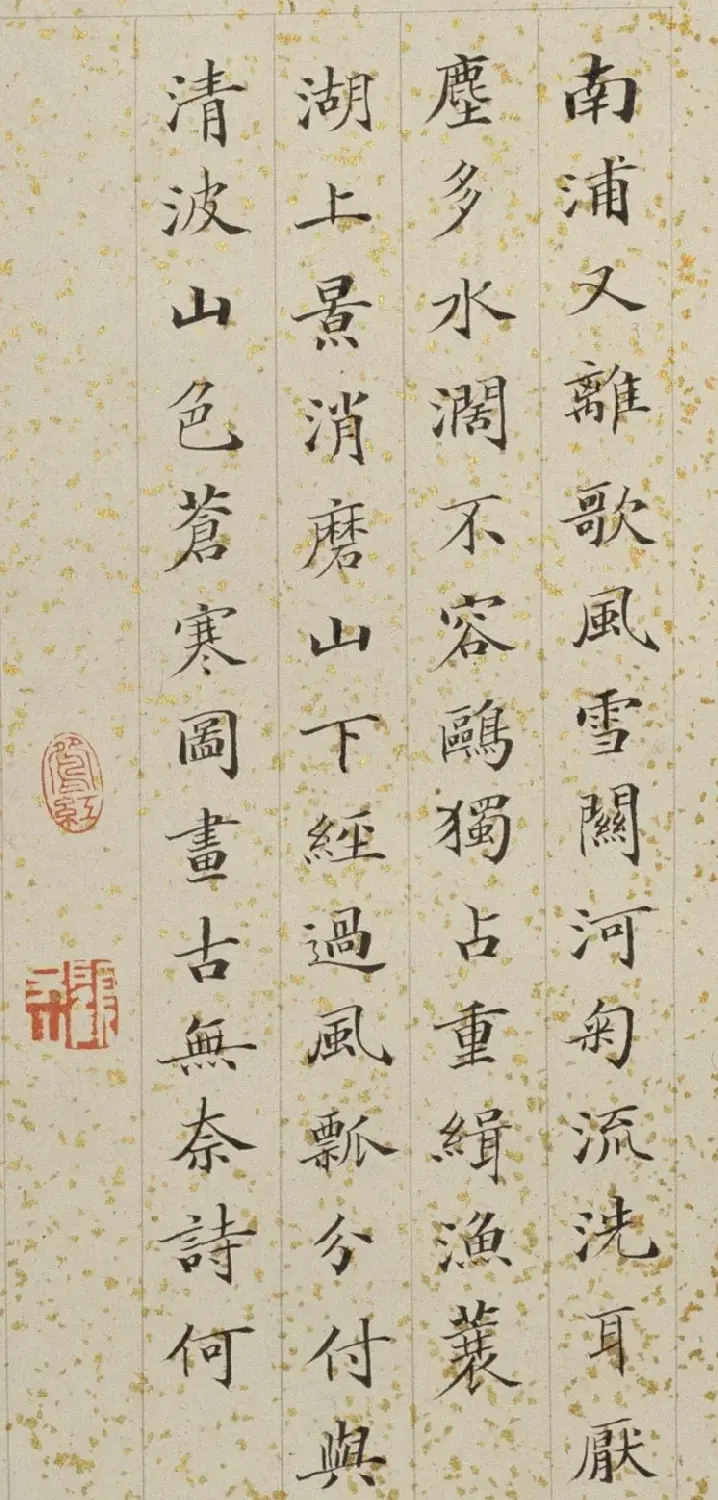 南浦又離歌風雪關河匊流洗耳厭
塵多水濶不容鷗獨占重緝漁蓑
湖上景消磨山下經過風瓢分付與
清波山色蒼寒圖畫古無奈詩何